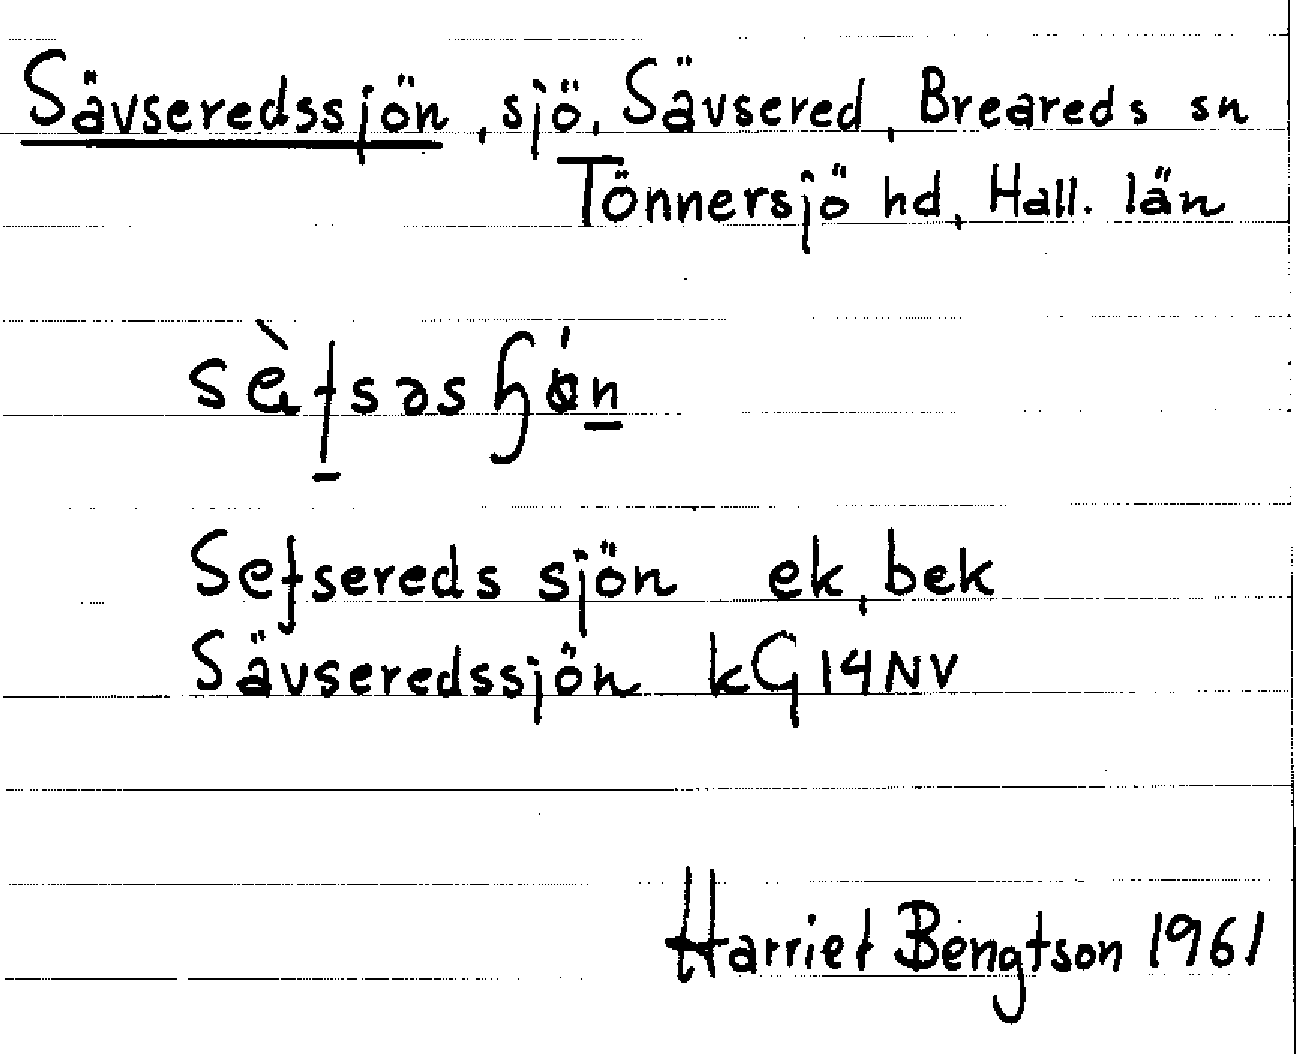 Sävseredssjön, sjö, Sävsered, Breareds sn
Tönnersjö hd, Hall. län
Sefsereds sjön ek, bek
Sävseredssjön kG 14 NV
Harriet Bengtson 1961